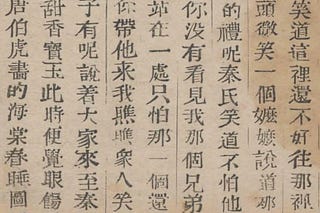 笑道這裡還不好往那裡
頭微笑一個嬷嬷說道那
的禮呢秦氏笑道不怕他
你没有看見我那個兄弟
站在一處只怕那一個還
你帶他來我瞧瞧衆人笑
子有呢說着大家來至秦
甜香寶玉此時便覺眼餳
唐伯虎畵的海棠春睡圖